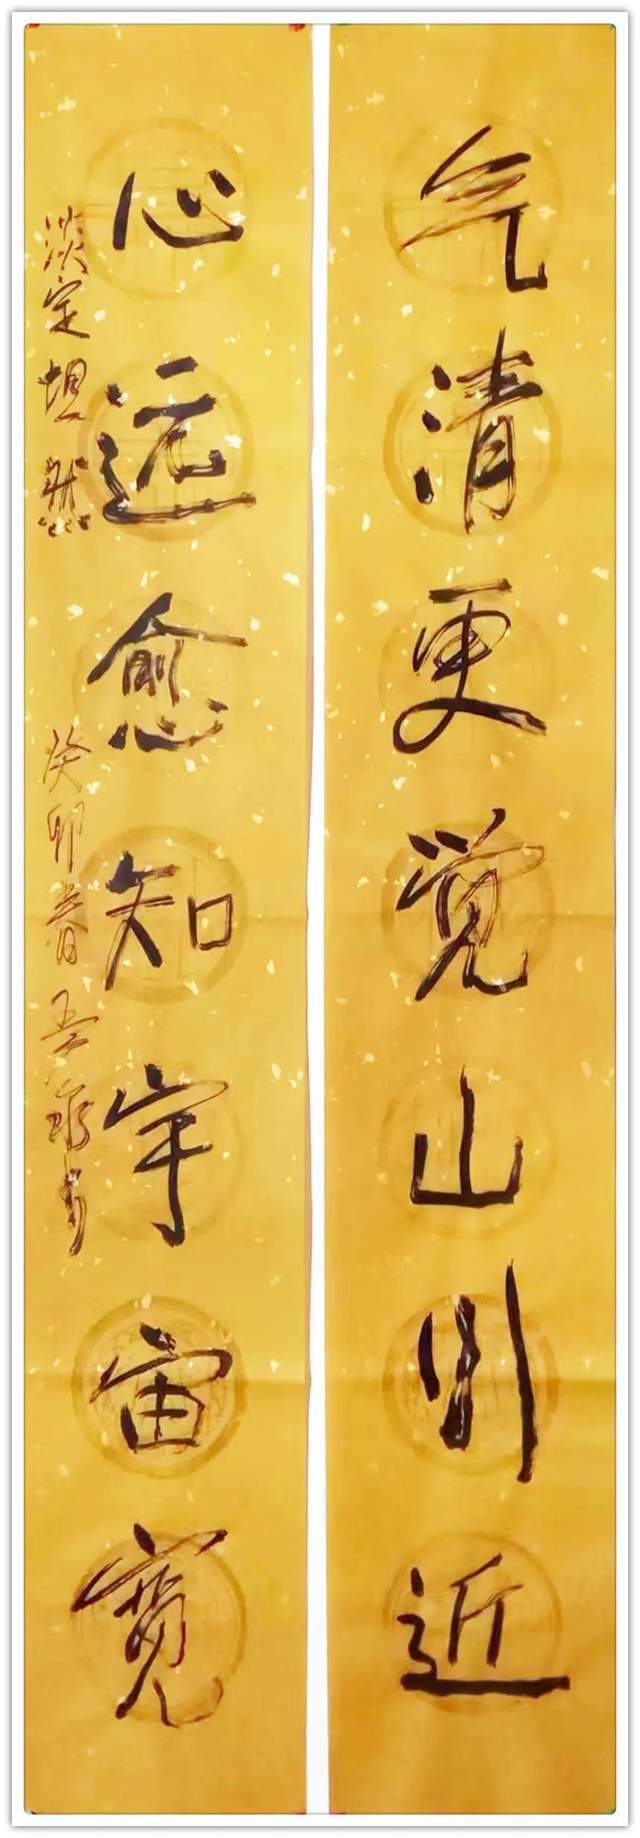 气清更觉山川近
心远愈知宇宙宽
淡定坦然
癸卯春